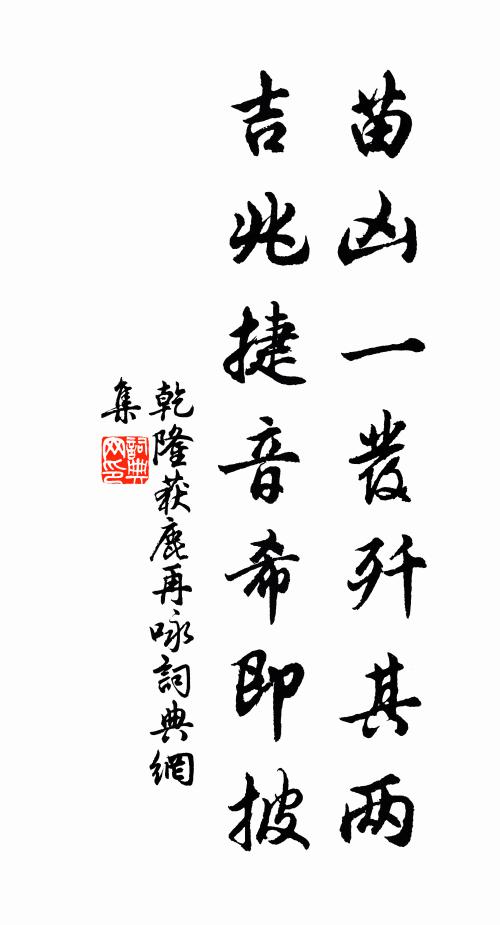 苗凶一發歼其两
吉兆捷音希即披
乾隆获鹿再咏詞典網
集
詞典
网印